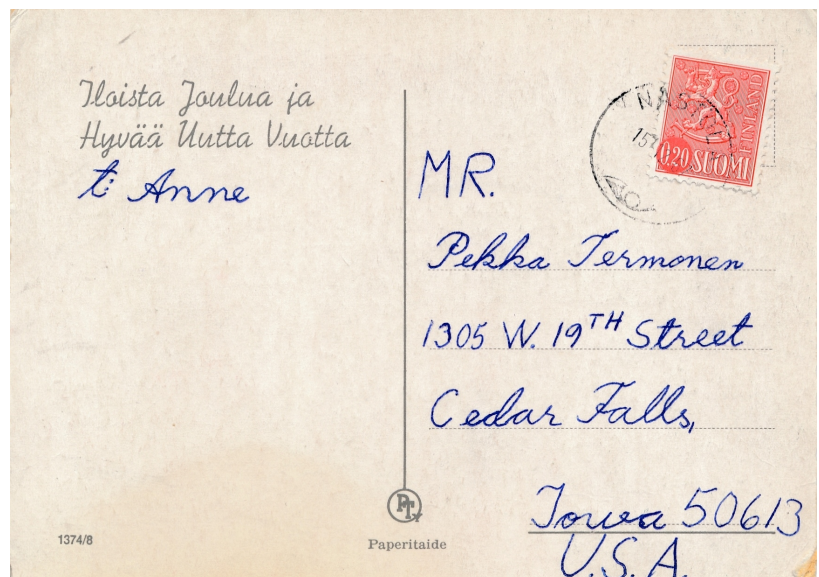 Iloista Joulua ja
Hyvää Uutta Vuotta
t: Anne
MR.
Pekka Termonen
1305 W. 19TH Street
Cedar Falls,
Iowa 50613
U.S.A.
0.20 SUOMI
FINLAND
PTy
Paperitaide
1374/8